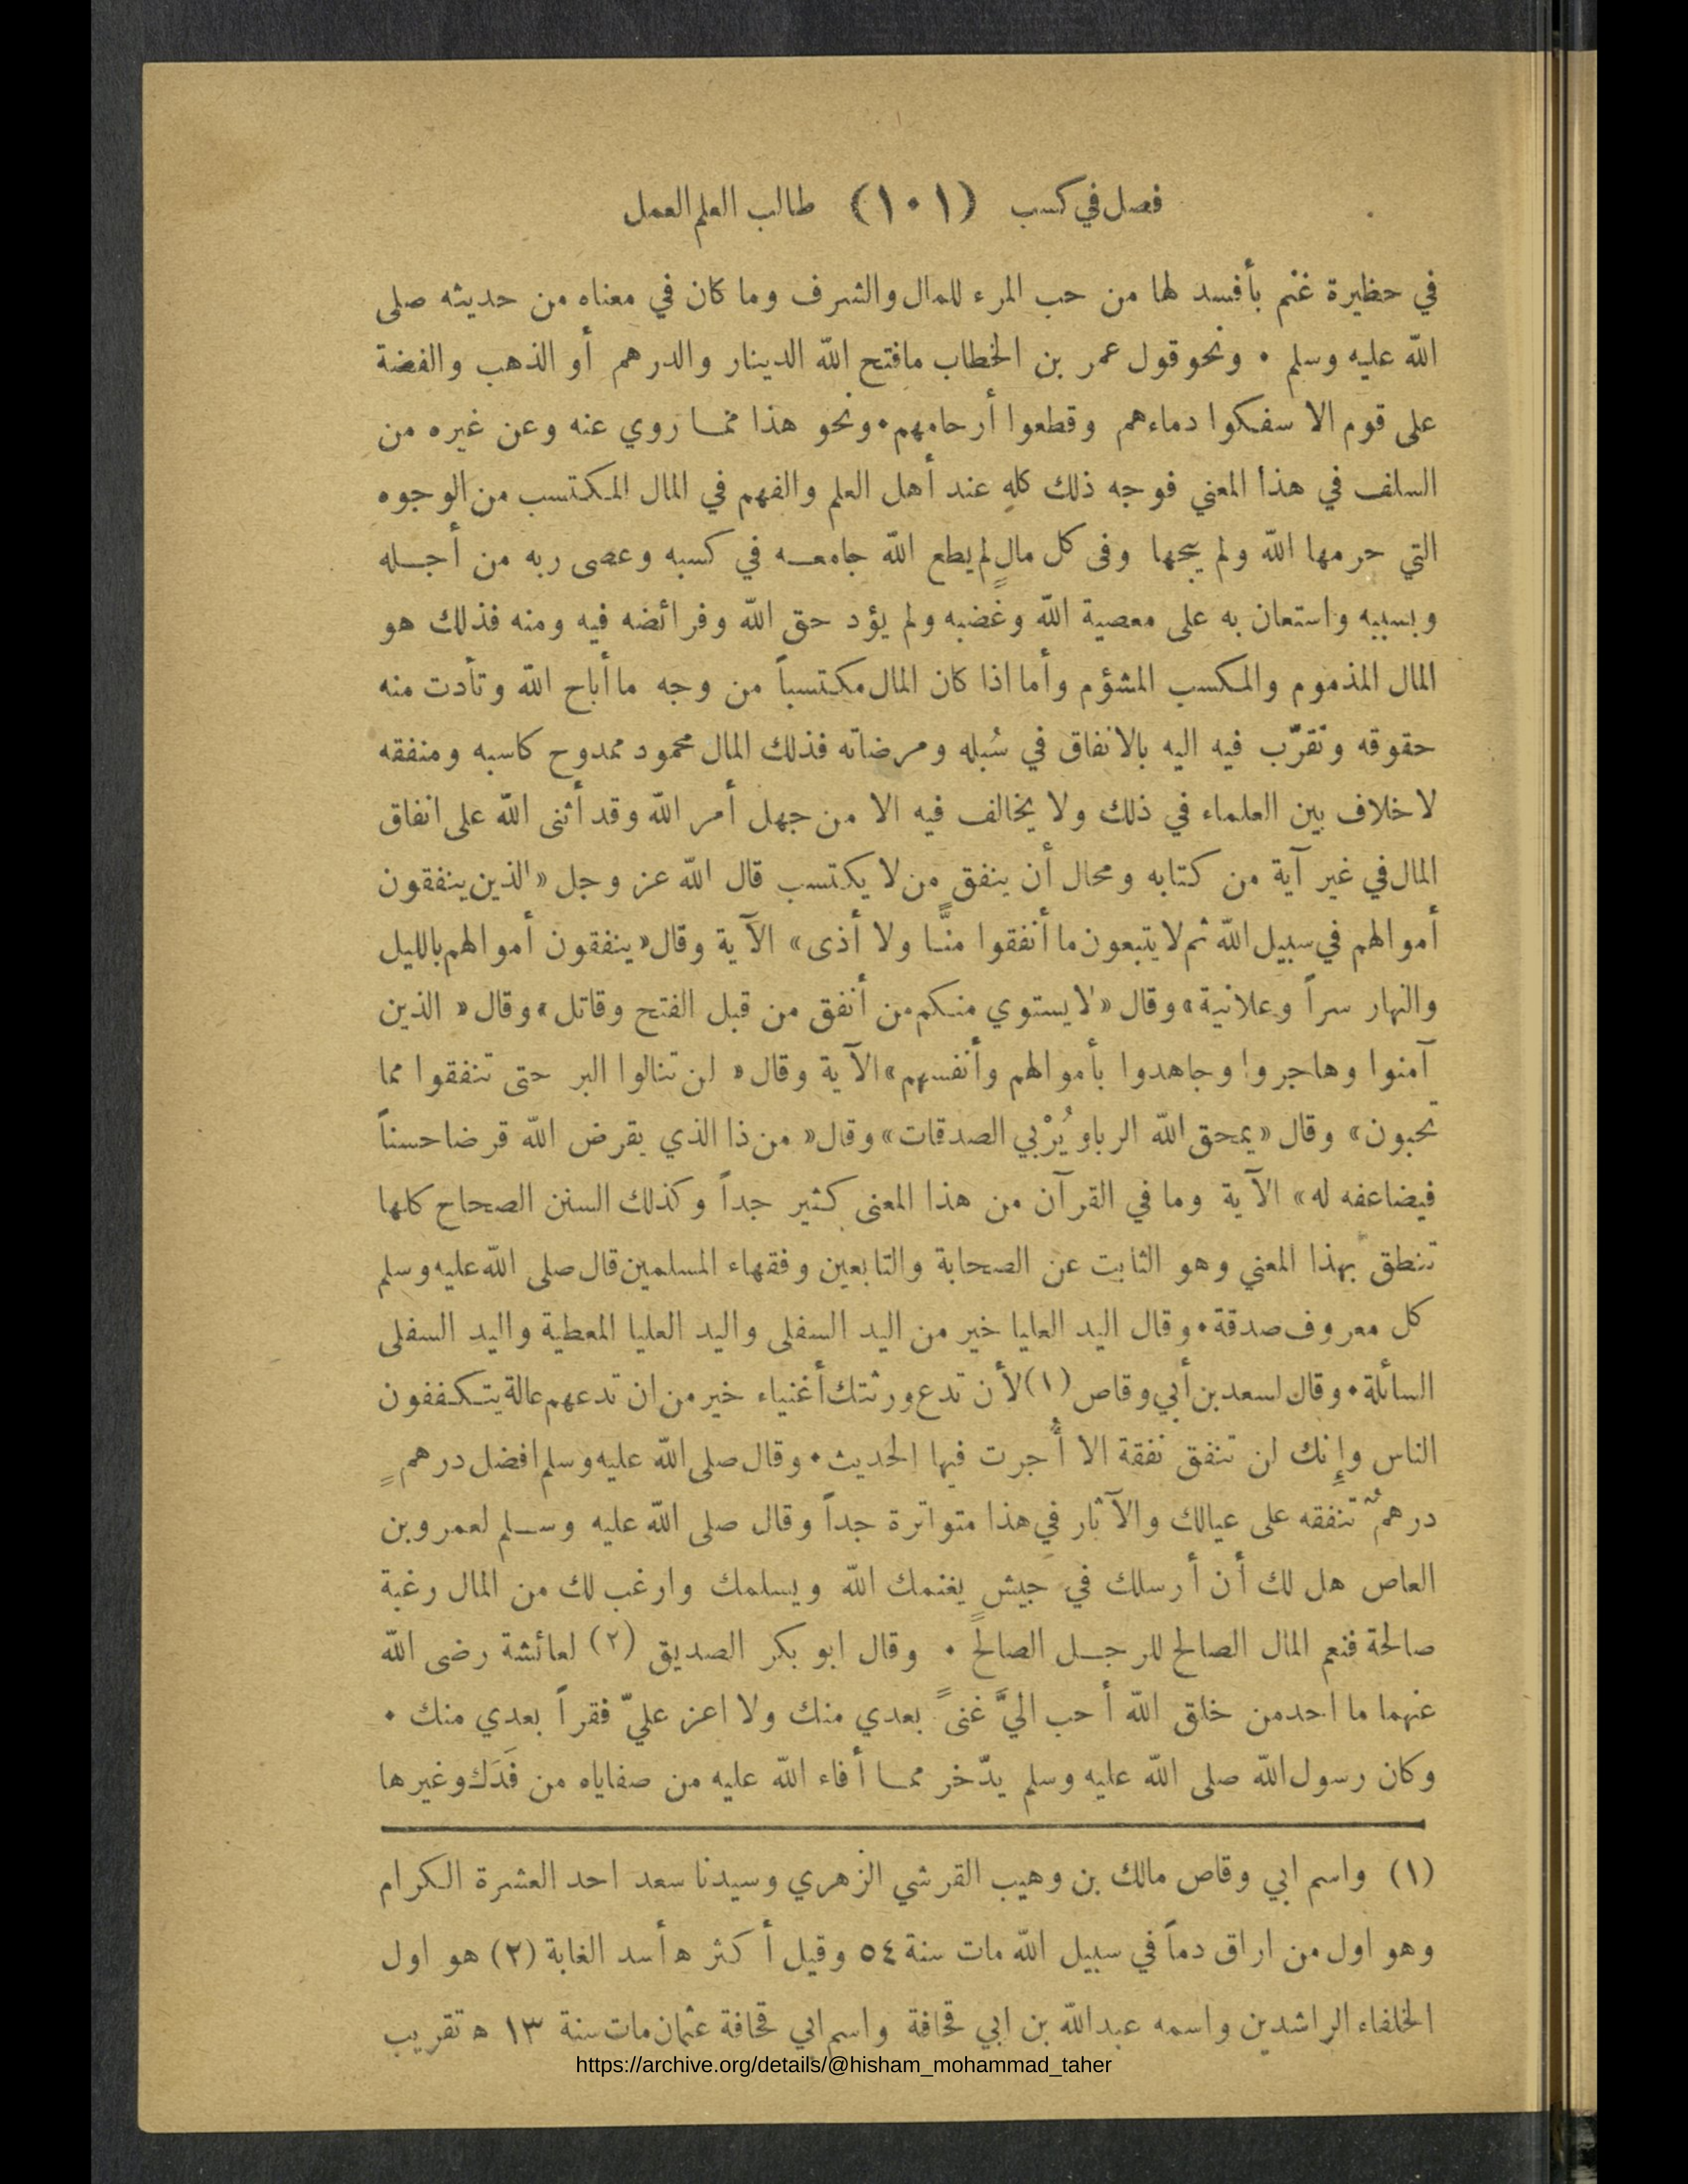 فصل في كسب (١٠١) طالب العلم العمل
في حظيرة غنم بأفسد لها من حب المرء للمال والشرف وما كان في معناه من حديثه صلى
الله عليه وسلم • ونحو قول عمر بن الخطاب مافتح الله الدينار والدرهم أو الذهب والفضة
على قوم الا سفكوا دماءهم وقطعوا أرحامهم • ونحو هذا مما روي عنه وعن غيره من
السلف في هذا المعني فوجه ذلك كلهِ عند أهل العلم والفهم في المال المكتسب من الوجوه
التي حرمها الله ولم يبحها وفى كل مالٍ لم يطع الله جامعه في كسبه وعصى ربه من أجله
وبسببه واستعان به على معصية الله وغضبه ولم يؤد حق الله وفرائضه فيه ومنه فذلك هو
المال المذموم والمكسب المشؤم وأما اذا كان المال مكتسباً من وجه ما أباح الله وتأدت منه
حقوقه وتقرّب فيه اليه بالانفاق في سُبله ومرضاته فذلك المال محمود ممدوح كاسبه ومنفقه
لا خلاف بين العلماء في ذلك ولا يخالف فيه الا من جهل أمر الله وقد أثنى الله على انفاق
المال في غير آية من كتابه ومحال أن ينفق من لا يكتسب قال الله عز وجل «الذين ينفقون
أموالهم في سبيل الله ثم لا يتبعون ما أنفقوا منًّا ولا أذى» الآية وقال «ينفقون أموالهم بالليل
والنهار سراً وعلانية» وقال «لا يستوي منكم من أنفق من قبل الفتح وقاتل» وقال «الذين
آمنوا وهاجروا وجاهدوا بأموالهم وأنفسهم» الآية وقال «لن تنالوا البر حتى تنفقوا مما
تحبون» وقال «يمحق الله الربا ويُرْبي الصدقات» وقال «من ذا الذي يقرض الله قرضا حسناً
فيضاعفه له» الآية وما في القرآن من هذا المعنى كثير جداً وكذلك السنن الصحاح كلها
تنطق بهذا المعني وهو الثابت عن الصحابة والتابعين وفقهاء المسلمين قال صلى الله عليه وسلم
كل معروف صدقة • وقال اليد العليا خير من اليد السفلى واليد العليا المعطية واليد السفلى
السائلة • وقال لسعد بن أبي وقاص (١) لأن تدع ورثتك أغنياء خير من ان تدعهم عالة يتكففون
الناس وإِنك لن تنفق نفقة الا أُجرت فيها الحديث • وقال صلى الله عليه وسلم افضل درهمٍ
درهمٌ تنفقه على عيالك والآثار في هذا متواترة جداً وقال صلى الله عليه وسلم لعمرو بن
العاص هل لك أن أرسلك في جيش يغنمك الله ويسلمك وارغب لك من المال رغبة
صالحة فنعم المال الصالح للرجل الصالح • وقال ابو بكر الصديق (٢) لعائشة رضى الله
عنهما ما احد من خلق الله أحب اليَّ غنىً بعدي منك ولا اعز عليّ فقراً بعدي منك •
وكان رسول الله صلى الله عليه وسلم يدّخر مما أفاء الله عليه من صفاياه من فَدَك وغيرها
(١) واسم ابي وقاص مالك بن وهيب القرشي الزهري وسيدنا سعد احد العشرة الكرام
وهو اول من اراق دماً في سبيل الله مات سنة ٥٤ وقيل أكثر ه أسد الغابة (٢) هو اول
الخلفاء الراشدين واسمه عبدالله بن ابي قحافة واسم ابي قحافة عثمان مات سنة ١٣ ه تقريب
https://archive.org/details/@hisham_mohammad_taher